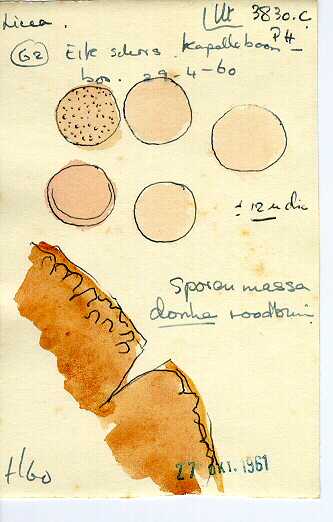 Licea.
3830.C
G2 Eik schors Kapelleboom
bos. 29-4-60
± 12 µ dia
Sporenmassa
donker roodbruin
H/60
27 OKT. 1961